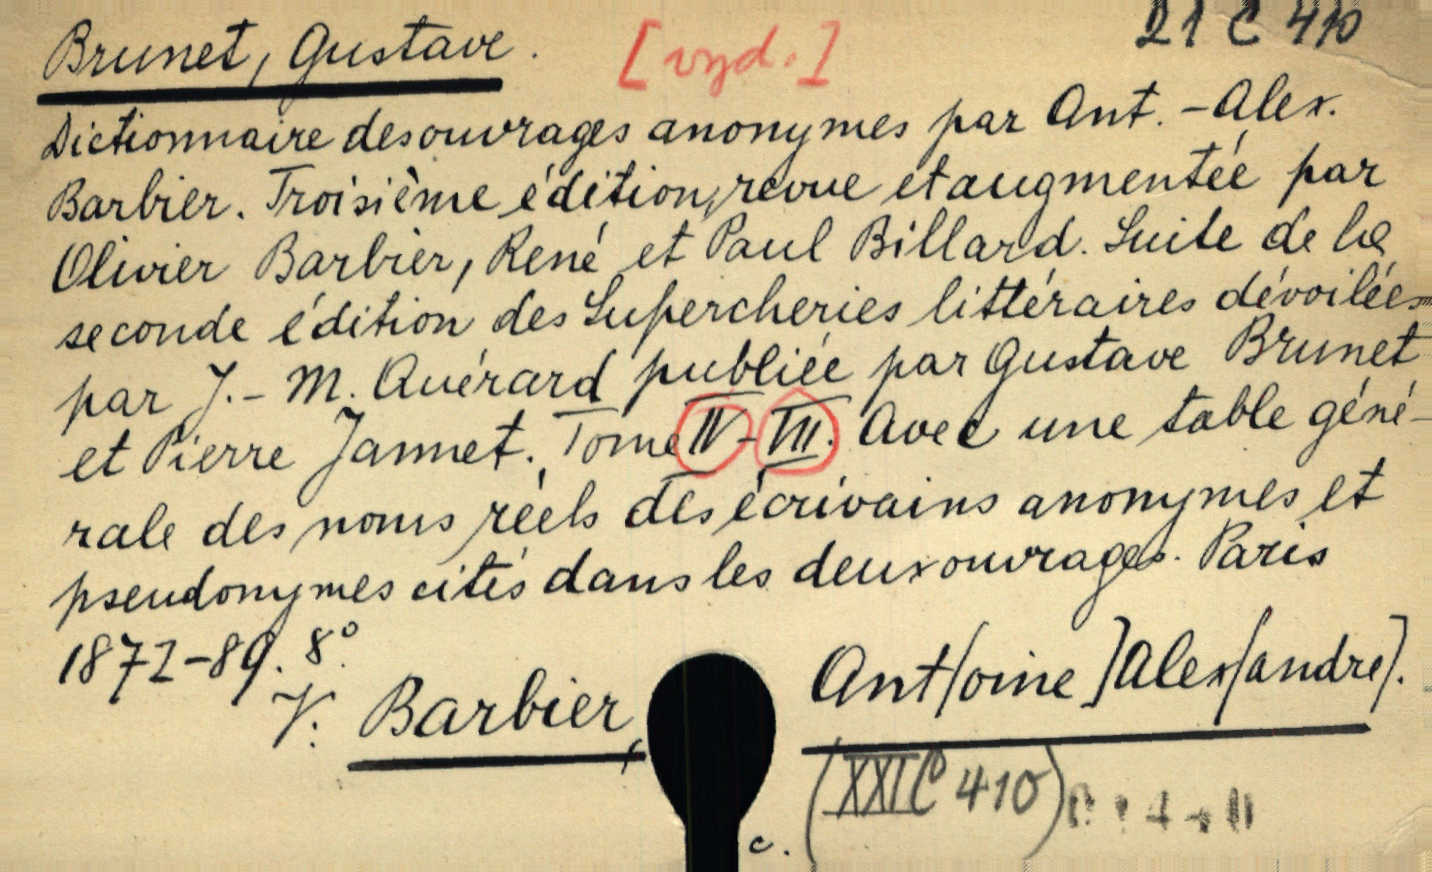 21 C 410
Brunet, Gustave. [vyd.]
Dictionnaire des ouvrages anonymes par Ant.-Alex.
Barbier. Troisième édition, revue et augmentée par
Olivier Barbier, René et Paul Billard. Suite de la
seconde édition des Supercheries littéraires dévoilées
par J.-M. Quérard publiée par Gustave Brunet
et Pierre Jannet. Tome IV-VII. Avec une table géné-
rale des noms réels des écrivains anonymes et
pseudonymes cités dans les deux ouvrages. Paris
1872-89. 8°.
V. Barbier, Ant[oine] Alex[andre].
(XXI C 410)
c.